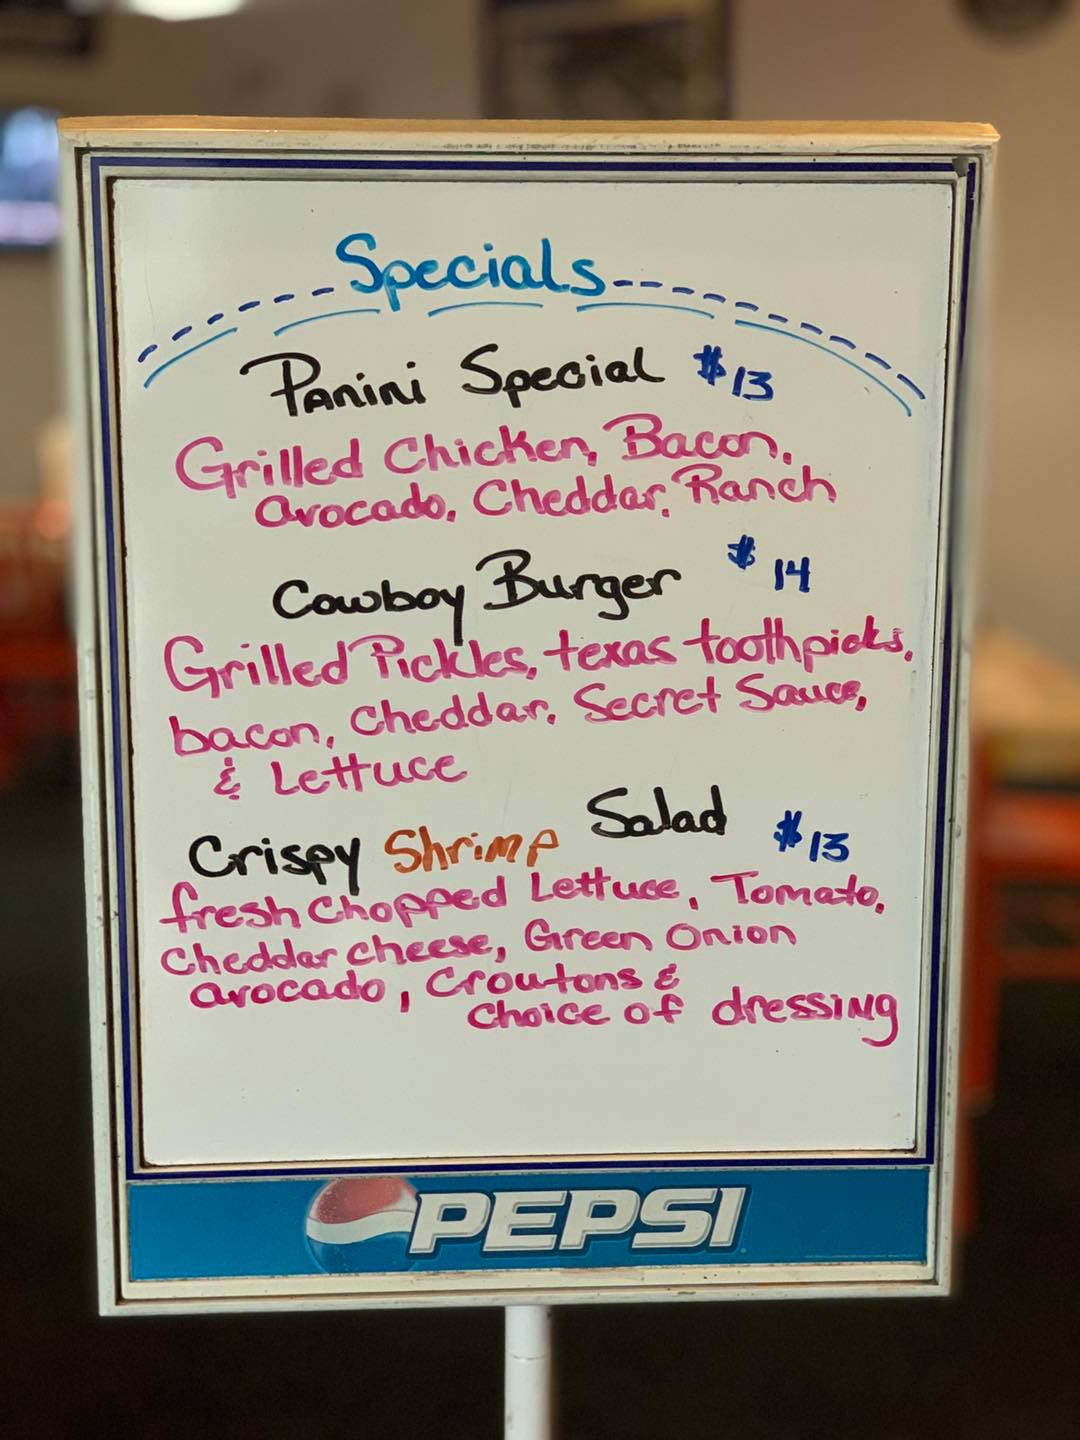 Specials
Panini Special $13
Grilled Chicken, Bacon,
avocado, Cheddar, Ranch
Cowboy Burger $14
Grilled Pickles, texas toothpicks,
bacon, Cheddar, Secret Sauce,
& Lettuce
Crispy Shrimp Salad $13
fresh chopped Lettuce, Tomato,
Cheddar cheese, Green Onion
avocado, Croutons &
choice of dressing
PEPSI